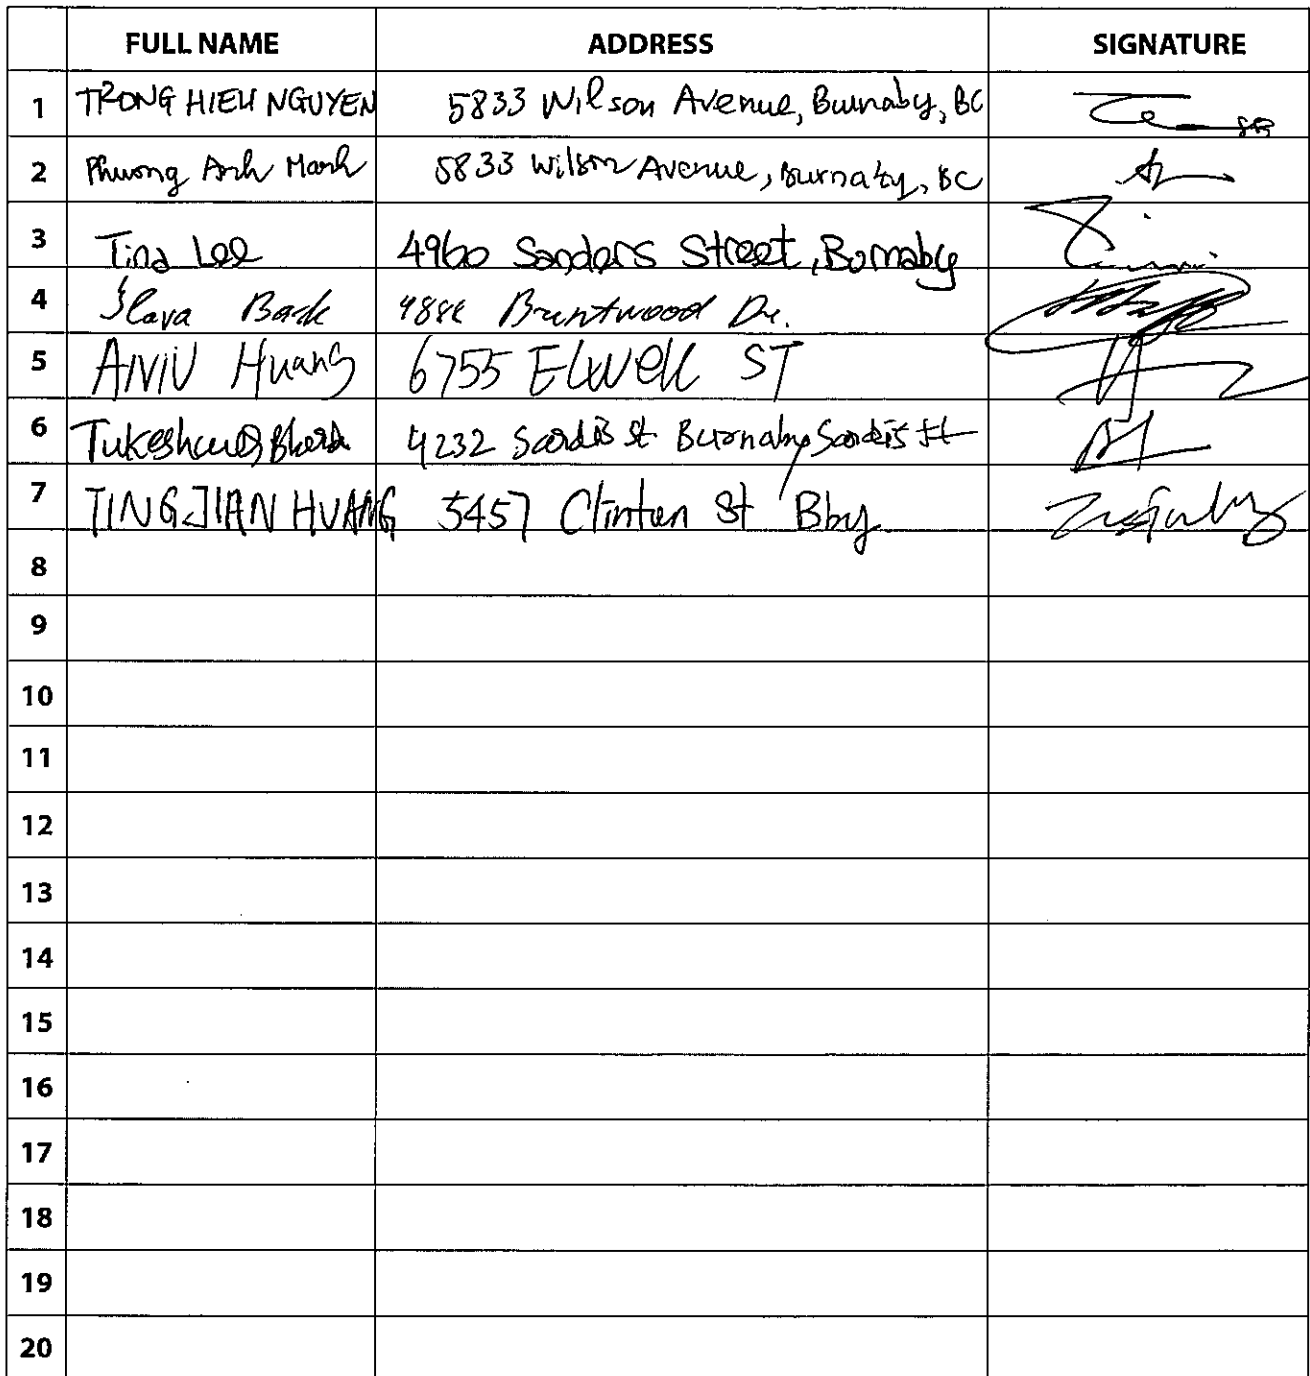 FULL NAME ADDRESS SIGNATURE
1 TRONG HIEU NGUYEN 5833 Wilson Avenue, Burnaby, BC
2 Phuong Anh 5833 Wilson Avenue, Burnaby, BC
3 Tina Lee 4960 Sanders Street, Burnaby
4 Slava Brentwood Dr.
5 Huang 6755 Elwell ST
6 4232 Sardis st Burnaby Sardis st
7 TINGJIAN HUANG 5457 Clinton St Bby
8
9
10
11
12
13
14
15
16
17
18
19
20